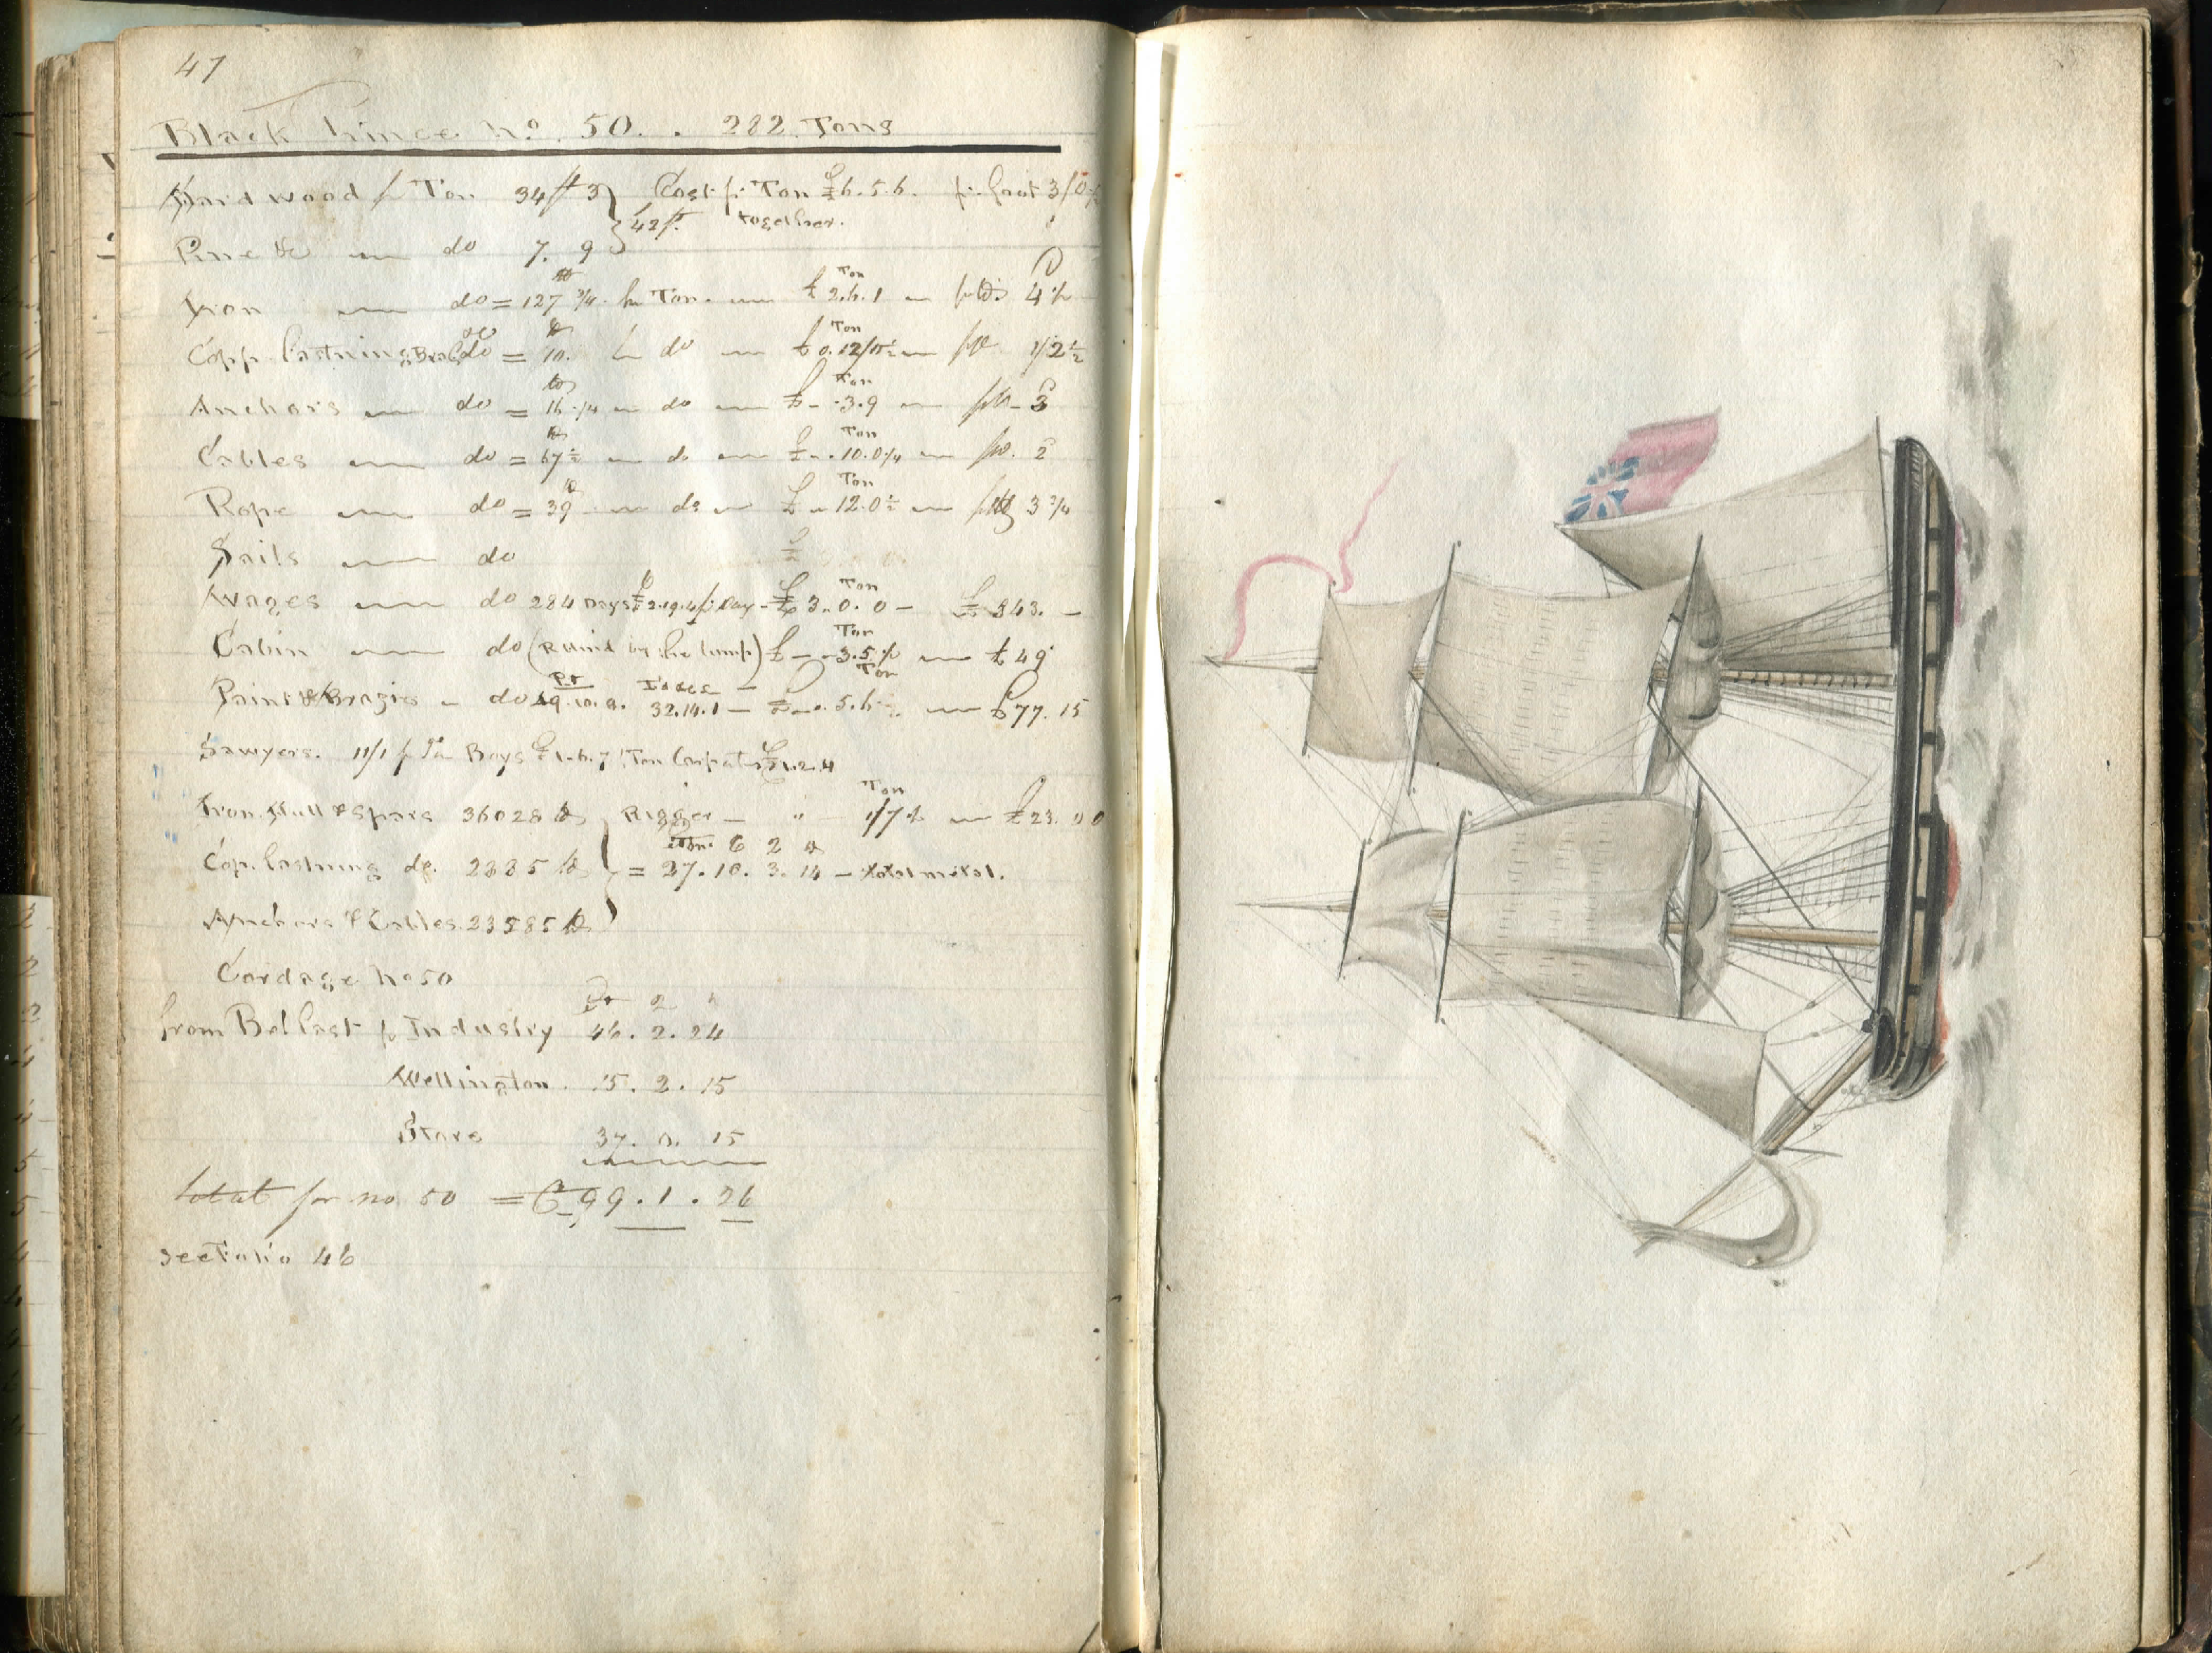 47
Black Prince No. 50. . 282. Tons
Hardwood p Ton 34 ft 3 } Cost p: Ton £6.5.6. p: foot 3/0
42 ft. together.
Pine &c do 7. 9
Iron do = 127 3/4 Ton. £2.6.1 Ton 4
Copp. fastning do = 10. do £0.12/ Ton 1/2½
Anchors do = 16 1/4 do £ - .3.9 Ton 3
Cables do = 67½ do £ .10.0 1/4 Ton 2
Rope do = 39 do £ 12.0½ Ton 3 3/4
Sails do £
Wages do 284 Days £2.19.4 p: Day - £3.0.0 - Ton £843. -
Cabin do ( by the lump) £ - .3.5 Ton £49
Paint & Brazier do 32.14.1 - £ 5.6 Ton £77. 15
Sawyers. 11/1 p Ton Boys £1.6.7 Ton £1.2.4
Iron Hull & Spars 36028 lb Rigger - " 1/7 Ton £23.00
Cop. fastning do. 2885 lb } = 27.18.3.14 - total metal.
Anchors & Cables. 23585 lb
Cordage No 50
from Belfast p Industry 46.2.24
Wellington. 15.2.15
Store 37.0.15
total for no 50 = C 99.1.26
see Folio 46